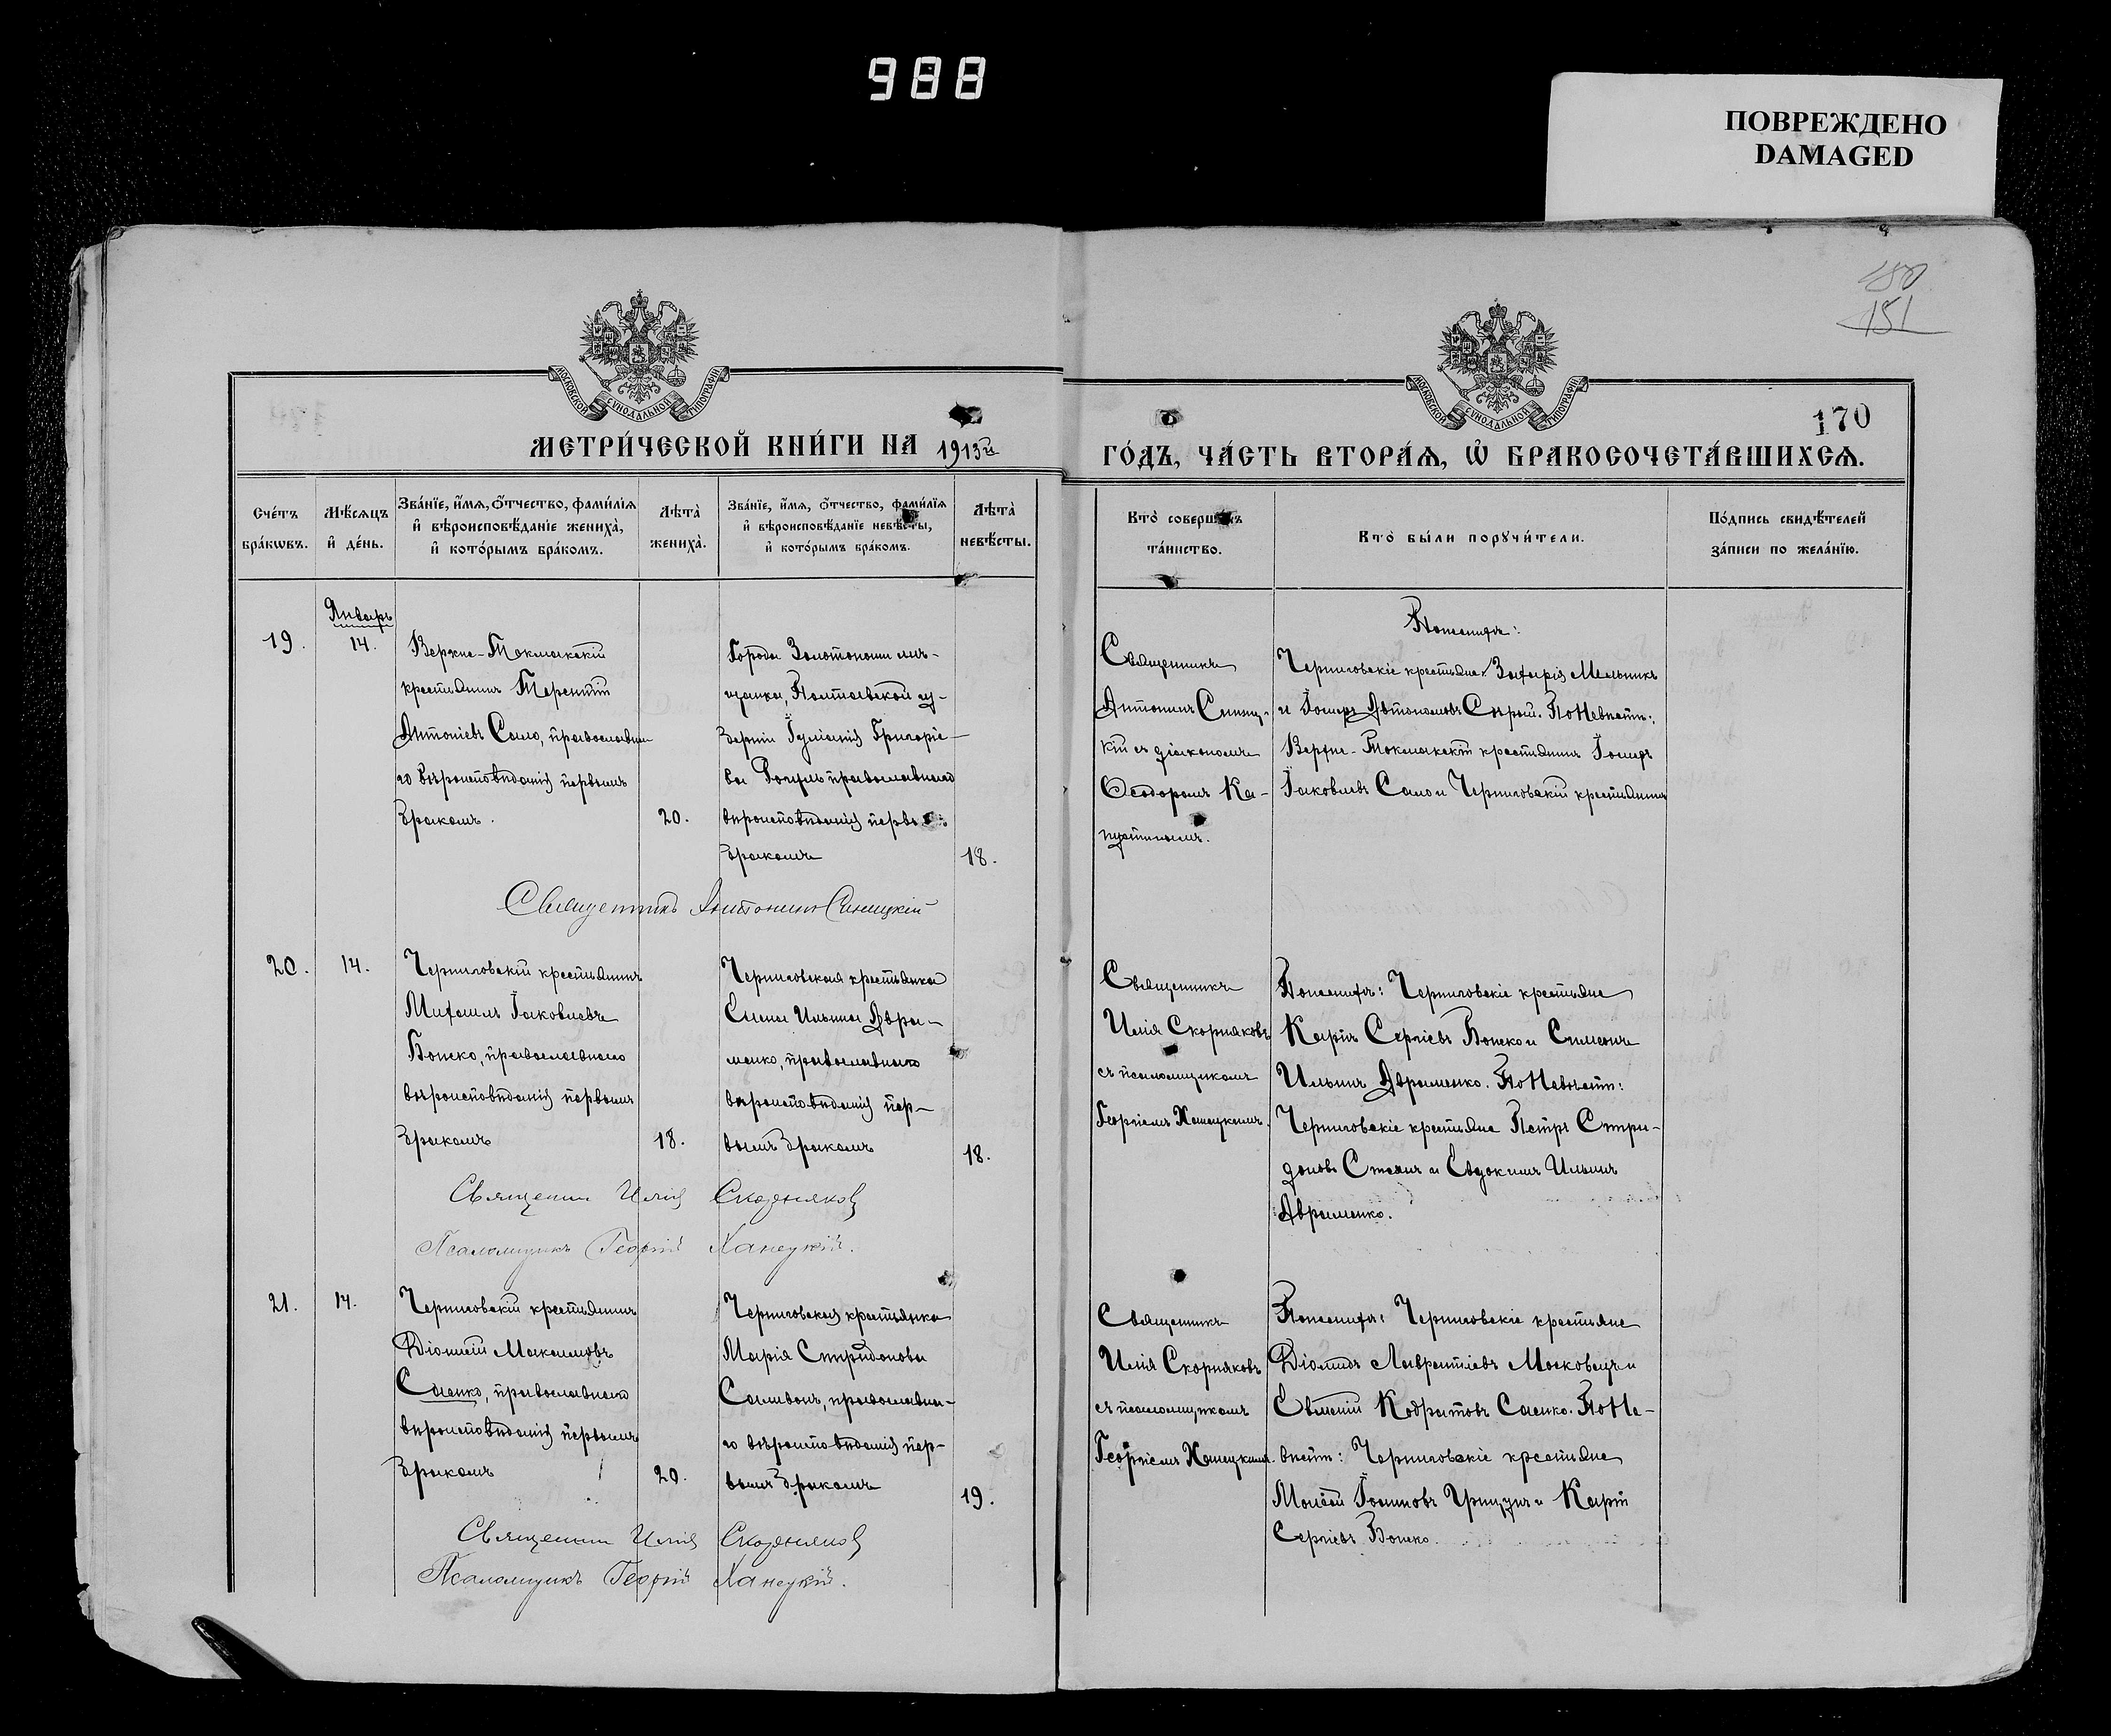 988
ПОВРЕЖДЕНО
DAMAGED
150
151
МОСКОВСКОЙ СѴНОДАЛЬНОЙ ТИПОГРАФІИ
МОСКОВСКОЙ СѴНОДАЛЬНОЙ ТИПОГРАФІИ
170
МЕТРИ́ЧЕСКОЙ КНИ́ГИ НА 1913й
ГО́ДЪ, ЧА́СТЬ ВТОРА́Ѧ, Ѡ БРАКОСОЧЕТА́ВШИХСѦ.
Сче́тъ бра́кѡвъ.
Мѣ́сяцъ и҆ де́нь.
Зва́нїе, и҆́мѧ, ѻ҆́тчество, фами́лїѧ
и҆ вѣроисповѣ́данїе жениха̀,
и҆ кото́рымъ бра́комъ.
Лѣта̀ жениха̀.
Зва́нїе, и҆́мѧ, ѻ҆́тчество, фами́лїѧ
и҆ вѣроисповѣ́данїе невѣ́сты,
и҆ кото́рымъ бра́комъ.
Лѣта̀ невѣ́сты.
Кто̀ соверша́лъ та́инство.
Кто̀ бы́ли порꙋчи́тели.
По́дпись свидѣ́телей за́писи по жела́нїю.
Январь
19. 14.
Верхне-Токмакскій
крестьянинъ Терентій
Антоніевъ Сало, православна
го вѣроисповѣданія первымъ
бракомъ. 20.
Города Золотоноши мѣ-
щанка, Полтавской гу-
берніи Іуліанія Григоріе-
ва православнаго
вѣроисповѣданія первы
бракомъ 18.
Священникъ
Антонинъ Синиц-
кій съ діакономъ
Ѳеодоромъ Ка-
пустинымъ.
По женихѣ:
Черниговскіе крестьяне: Захарія Мельникъ
и Іосифъ Автономовъ Сѣрый. По Невѣстѣ:
Верхне-Токмакскій крестьянинъ Іосифъ
Іаковлевъ Сало и Черниговскій крестьянинъ
Священникъ Антонинъ Синицкій
20. 14.
Черниговскій крестьянинъ
Михаилъ Іаковлевъ
Бойко, православнаго
вѣроисповѣданія первымъ
бракомъ 18.
Черниговская крестьянка
Елена Ильина Авра-
менко, православнаго
вѣроисповѣданія пер-
вымъ бракомъ 18.
Священникъ
Илія Скорняковъ
съ псаломщикомъ
Георгіемъ Ханецкимъ.
По женихѣ: Черниговскіе крестьяне
Карпъ Сергіевъ Бойко и Симеонъ
Ильинъ Авраменко. По Невѣстѣ:
Черниговскіе крестьяне Петръ Спири-
доновъ и Евдокимъ Ильинъ
Авраменко.
Священник Илія Скорняковъ
Псаломщикъ Георгій Ханецкій.
21. 14.
Черниговскій крестьянинъ
Діонисій Максимовъ
Саенко, православнаго
вѣроисповѣданія первымъ
бракомъ 20.
Черниговская крестьянка
Марія Спиридонова
Саливонъ, православна-
го вѣроисповѣданія пер-
вымъ бракомъ 19.
Священникъ
Илія Скорняковъ
съ псаломщикомъ
Георгіемъ Ханецкимъ.
По женихѣ: Черниговскіе крестьяне
Діомидъ Лаврентіевъ Московецъ и
Евменій Кодратовъ Саенко. По Не-
вѣстѣ: Черниговскіе крестьяне
Моисей Іоанновъ Грицунъ и Карпъ
Сергіевъ Бойко.
Священник Илія Скорняковъ
Псаломщикъ Георгій Ханецкій.